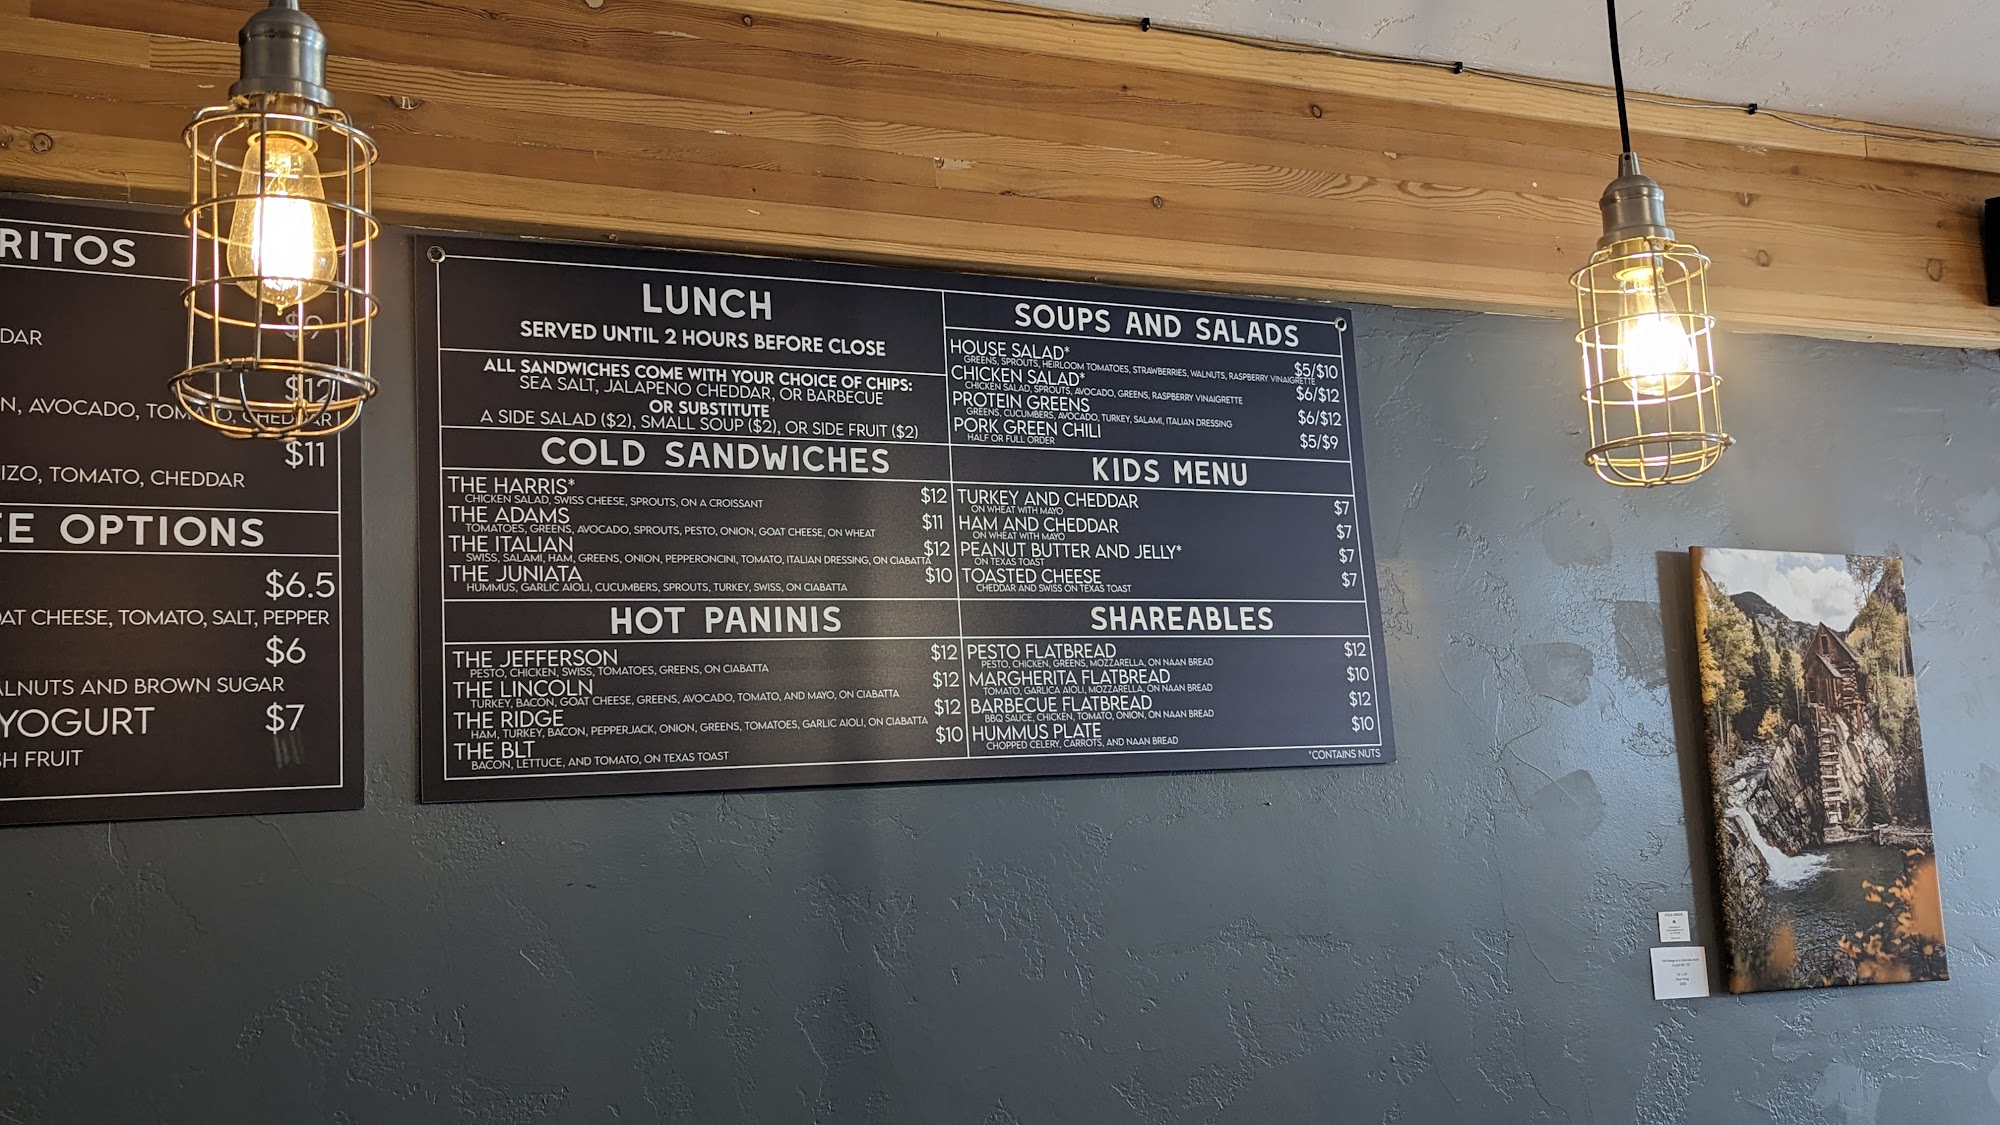 RITOS
$9
DAR
$12
N, AVOCADO, TOMATO, CHEDDAR
$11
IZO, TOMATO, CHEDDAR
EE OPTIONS
$6.5
OAT CHEESE, TOMATO, SALT, PEPPER
$6
ALNUTS AND BROWN SUGAR
YOGURT $7
SH FRUIT
LUNCH
SERVED UNTIL 2 HOURS BEFORE CLOSE
ALL SANDWICHES COME WITH YOUR CHOICE OF CHIPS:
SEA SALT, JALAPENO CHEDDAR, OR BARBECUE
OR SUBSTITUTE
A SIDE SALAD ($2), SMALL SOUP ($2), OR SIDE FRUIT ($2)
COLD SANDWICHES
THE HARRIS* $12
CHICKEN SALAD, SWISS CHEESE, SPROUTS, ON A CROISSANT
THE ADAMS $11
TOMATOES, GREENS, AVOCADO, SPROUTS, PESTO, ONION, GOAT CHEESE, ON WHEAT
THE ITALIAN $12
SWISS, SALAMI, HAM, GREENS, ONION, PEPPERONCINI, TOMATO, ITALIAN DRESSING, ON CIABATTA
THE JUNIATA $10
HUMMUS, GARLIC AIOLI, CUCUMBERS, SPROUTS, TURKEY, SWISS, ON CIABATTA
HOT PANINIS
THE JEFFERSON $12
PESTO, CHICKEN, SWISS, TOMATOES, GREENS, ON CIABATTA
THE LINCOLN $12
TURKEY, BACON, GOAT CHEESE, GREENS, AVOCADO, TOMATO, AND MAYO, ON CIABATTA
THE RIDGE $12
HAM, TURKEY, BACON, PEPPERJACK, ONION, GREENS, TOMATOES, GARLIC AIOLI, ON CIABATTA
THE BLT $10
BACON, LETTUCE, AND TOMATO, ON TEXAS TOAST
SOUPS AND SALADS
HOUSE SALAD* $5/$10
GREENS, SPROUTS, HEIRLOOM TOMATOES, STRAWBERRIES, WALNUTS, RASPBERRY VINAIGRETTE
CHICKEN SALAD* $6/$12
CHICKEN SALAD, SPROUTS, AVOCADO, GREENS, RASPBERRY VINAIGRETTE
PROTEIN GREENS $6/$12
GREENS, CUCUMBERS, AVOCADO, TURKEY, SALAMI, ITALIAN DRESSING
PORK GREEN CHILI $5/$9
HALF OR FULL ORDER
KIDS MENU
TURKEY AND CHEDDAR $7
ON WHEAT WITH MAYO
HAM AND CHEDDAR $7
ON WHEAT WITH MAYO
PEANUT BUTTER AND JELLY* $7
ON TEXAS TOAST
TOASTED CHEESE $7
CHEDDAR AND SWISS ON TEXAS TOAST
SHAREABLES
PESTO FLATBREAD $12
PESTO, CHICKEN, GREENS, MOZZARELLA, ON NAAN BREAD
MARGHERITA FLATBREAD $10
TOMATO, GARLICA AIOLI, MOZZARELLA, ON NAAN BREAD
BARBECUE FLATBREAD $12
BBQ SAUCE, CHICKEN, TOMATO, ONION, ON NAAN BREAD
HUMMUS PLATE $10
CHOPPED CELERY, CARROTS, AND NAAN BREAD
*CONTAINS NUTS